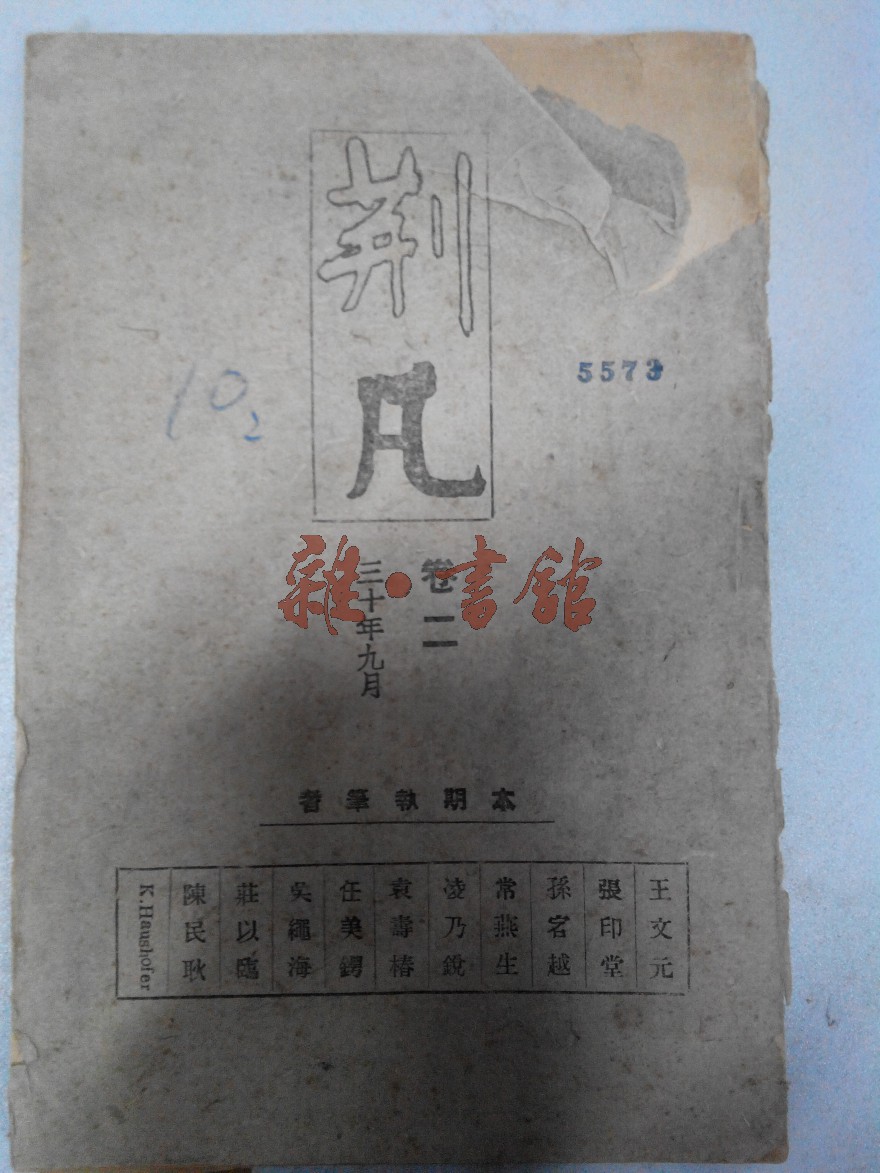 荆凡
5573
10₂
卷二
三十年九月
雜·書館
本期執筆者
王文元
張印堂
孫宕越
常燕生
凌乃銳
袁壽椿
任美鍔
吳繩海
莊以臨
陳民耿
K.Haushofer